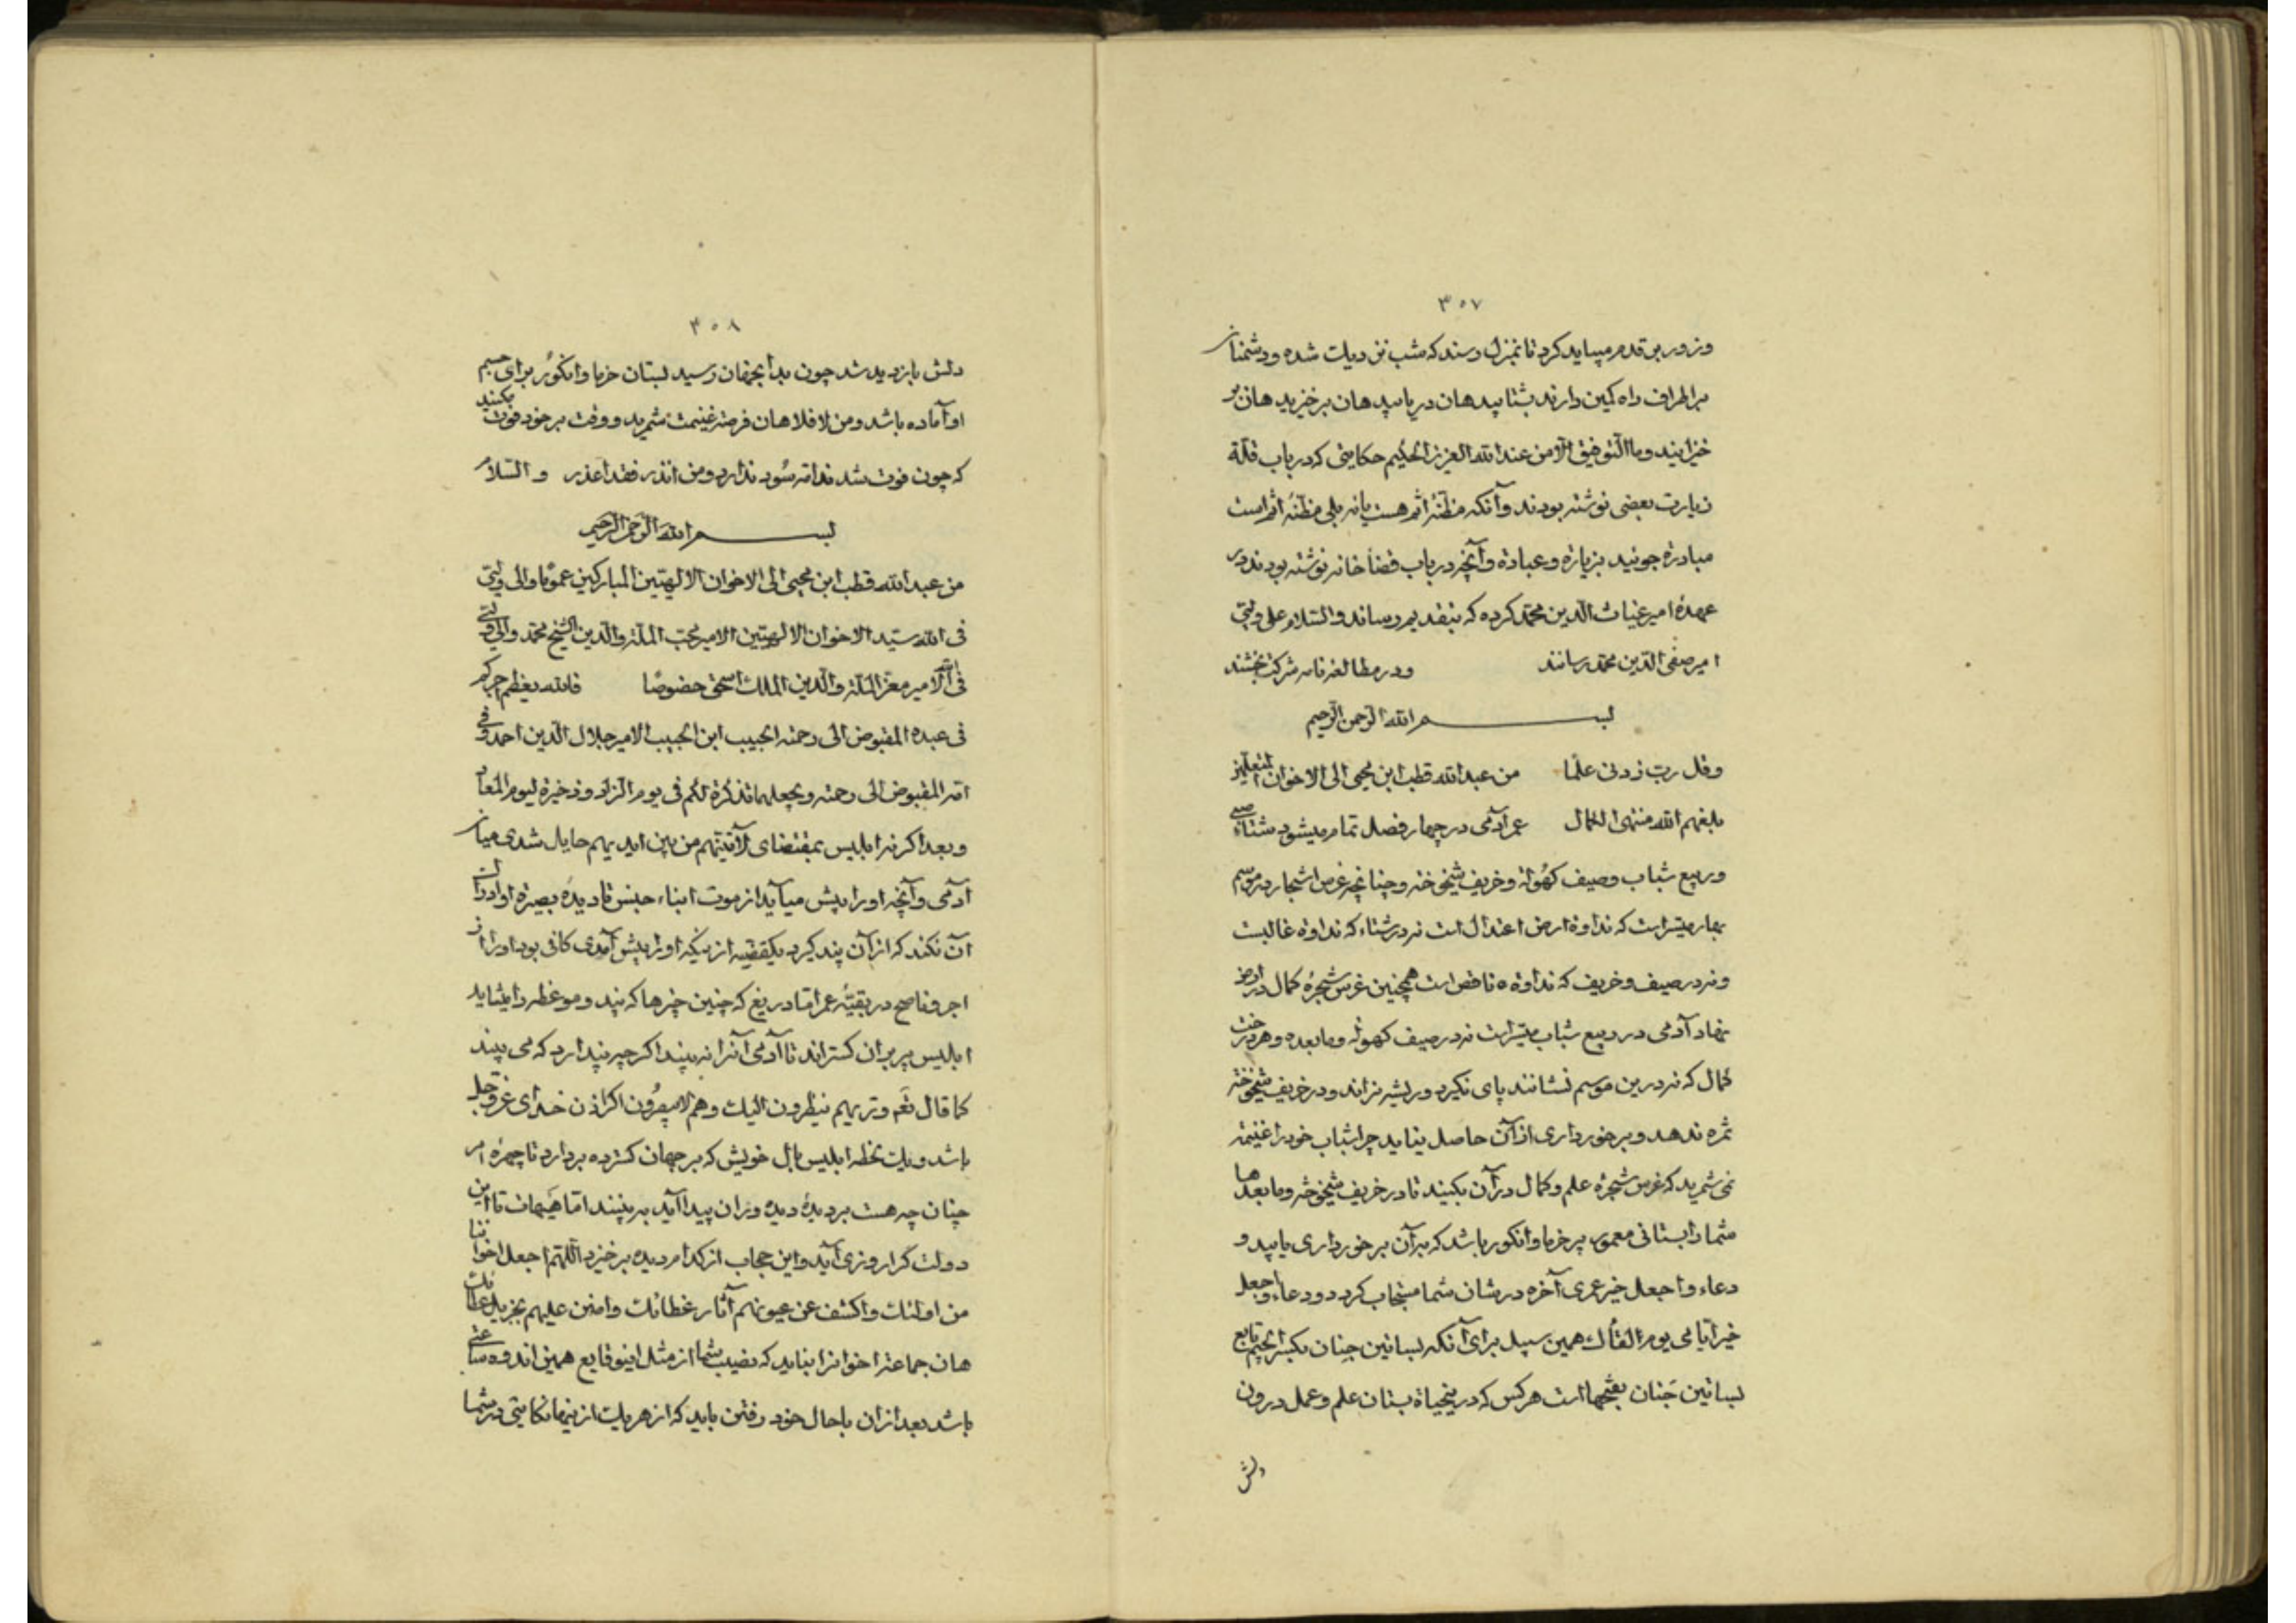 ۳۵۷
و زور برین قدم میباید کرد تا بمنزل رسند که شب نزدیک شده و دشمنان
بر اطراف راه کمین دارند بشتابید هان دریابید هان برخیزید هان بر
خیزانید و ما التوفیق الا من عند الله العزیز الحکیم حکایتی که در باب قلة
زیارت بعضی نوشته بودند و آنکه مظنهٔ اثم هست یا نه بلی مظنهٔ اثم است
مبادرة جوئید بزیارة و عیادة و آنچه در باب قضا خانه نوشته بودند در
عهدهٔ امیر غیاث الدین محمد کرده که بتقدیم رساند و السلام علی ولیّی
امیر صفی الدین محمد رسانند و در مطالعه نامه شرکت بخشند
بسم الله الرحمن الرحیم
و قل رب زدنی علما من عبد الله قطب ابن محیی الی الاخوان المتعلمین
بلغهم الله منتهی الکمال عمر آدمی در چهار فصل تمام میشود شتاء صبی
و ربیع شباب و صیف کهولة و خریف شیخوخة و چنانچه غرس اشجار در موسم
بهار میسر است که نداوة ارض اعتدال است نه در شتاء که نداوة غالبست
و نه در صیف و خریف که نداوة ناقص است همچنین غرس شجرهٔ کمال در ارض
نهاد آدمی در ربیع شباب میسر است نه در صیف کهولة و ما بعده و هر درخت
کمال که نه درین موسم نشانند پای نگیرد و ریشه نراند و در خریف شیخوخة
ثمره ندهد و برخورداری از آن حاصل نیاید چرا شباب خود را غنیمة
نمی شمرید که غرس شجرهٔ علم و کمال در آن بکنید تا در خریف شیخوخة و ما بعدها
شما را بستانی معمور پر خرما و انگور باشد که بر آن برخورداری یابید و
دعاء و اجعل خیر عمری آخره در شان شما مستجاب گردد و دعاء و اجعل
خیر ایامی یوم القاک همین سبیل برای آنکه بساتین جنان بکسر الجیم تابع
بساتین جَنان بفتحها است هر کس که درینحیاة بستان علم و عمل درون
دلش
۳۵۸
دلش بازدید شد چون بدانجهان رسید بستان خرما و انگور برای جسم
او آماده باشد و من لا فلا هان فرصة غنیمت شمرید و وقت بر خود فوت مکنید
که چون فوت شد ندامة سود ندارد و من انذر فقد اعذر و السلام
بسم الله الرحمن الرحیم
من عبد الله قطب ابن محیی الی الاخوان الالهیین المبارکین عموما و الی ولیّی
فی الله سید الاخوان الالهیین الامیر محب الملة و الدین الشیخ محمد و الی ولیّی
فی الله الامیر معز الملة و الدین الملک اسحق خصوصا فالله یعظم اجرکم
فی عبده المقبوض الی رحمته الحبیب ابن الحبیب الامیر جلال الدین احمد و فی
امته المقبوض الی رحمته و یجعلهما تذکرة لکم فی یوم الزاد و ذخیرة لیوم المعاد
و بعد اگر نه ابلیس بمقتضای لآتینهم من بین ایدیهم حایل شدی میان
آدمی و آنچه او را پیش میآید از موت ابناء جنس تا دیدهٔ بصیرة او ادراک
آن نکند که از آن پند گیرد یکقضیه از نیکه او را پیش آمدی کافی بود او را از
اجر و ناصح در بقیهٔ عمر اما دریغ که چنین چیزها که پند و موعظه را میشاید
ابلیس پر بران گستراند تا آدمی آنرا نبیند اگر چه پندارد که می بیند
کما قال تعم و تریهم ینظرون الیک و هم لا یبصرون اگر اذن خدای عز و جل
باشد و یک لحظه ابلیس بال خویش که بر جهان گسترده بردارد تا چهرهٔ امر
چنان چه هست بر دیدهٔ دیده وران پیدا آید به بینند اما هیهات تا این
دولت کرا روزی آید و این حجاب از کدام دیده برخیزد اللهم اجعل اخواننا
من اولئک و اکشف عن عیونهم آثار غطائک و امنن علیهم بجزیل عطائک
هان جماعة اخوانرا نباید که نصیب شما از مثل اینوقایع همین اندوه ساعتی
باشد بعد از ان باحال خود رفتن باید که از هر یک از ینها نکایتی در شما